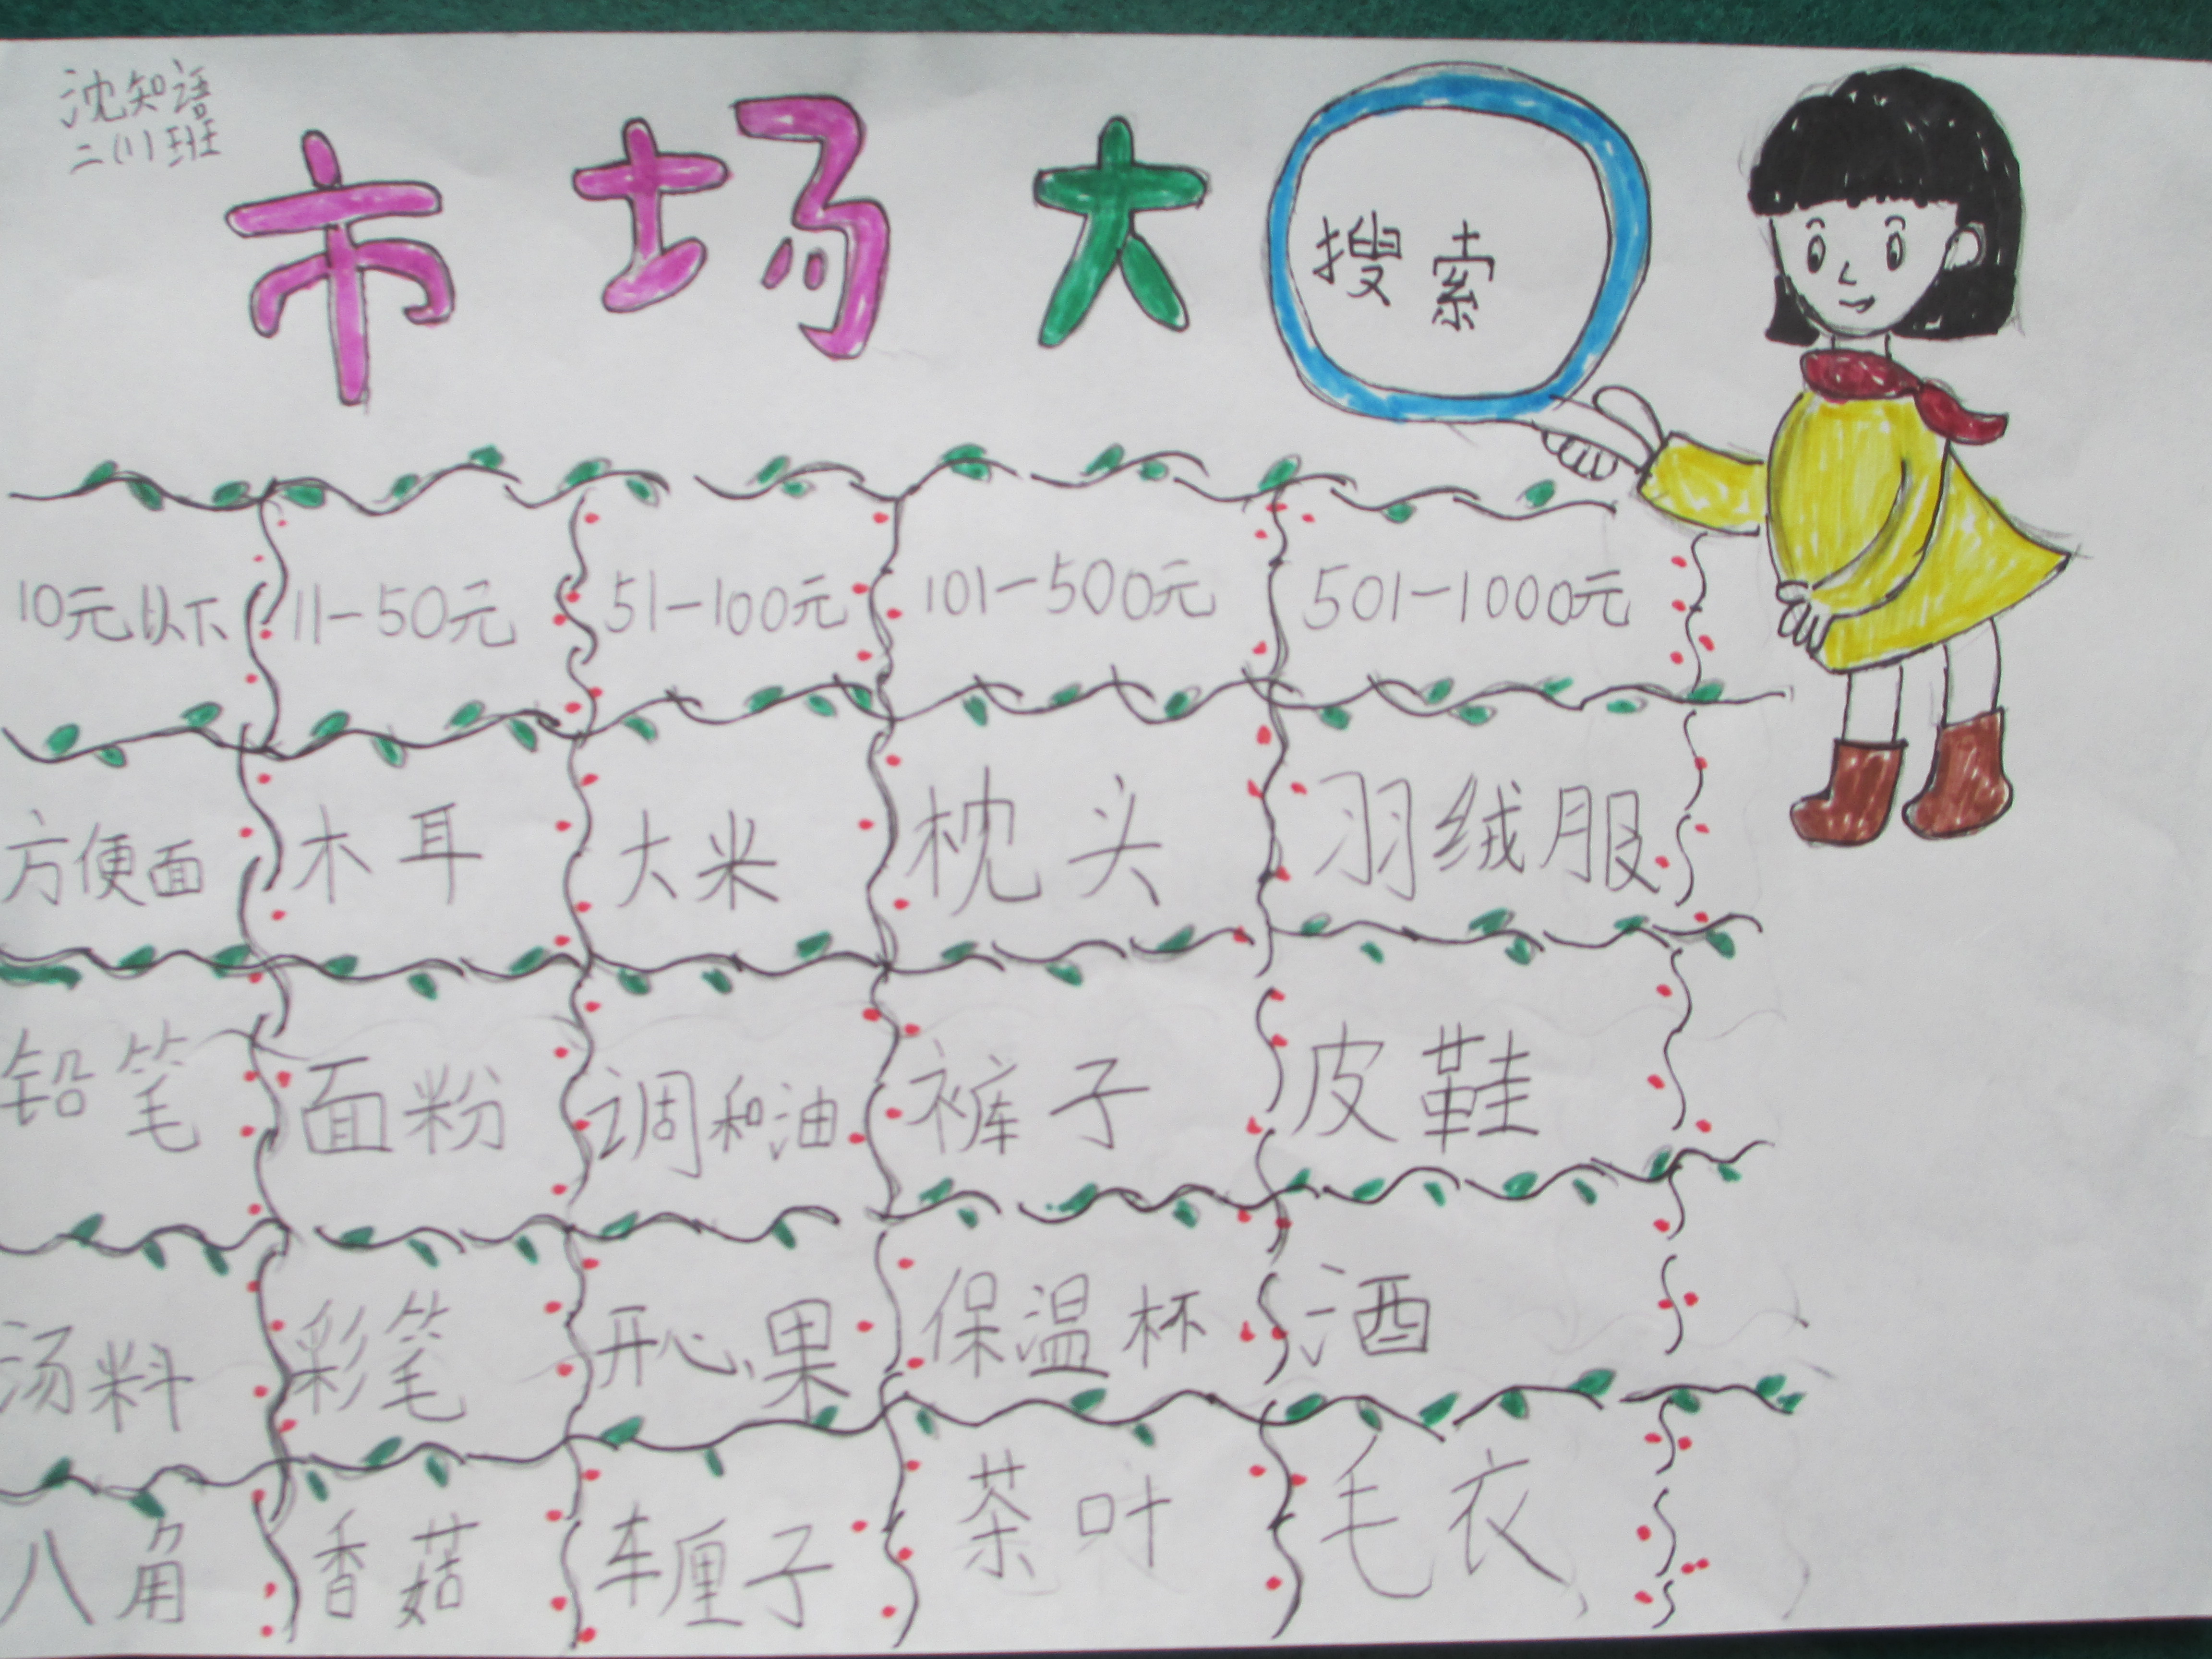 沈知语
二(1)班
市场大搜索
10元以下 11-50元 51-100元 101-500元 501-1000元
方便面 木耳 大米 枕头 羽绒服
铅笔 面粉 调和油 裤子 皮鞋
汤料 彩笔 开心果 保温杯 酒
八角 香菇 车厘子 茶叶 毛衣